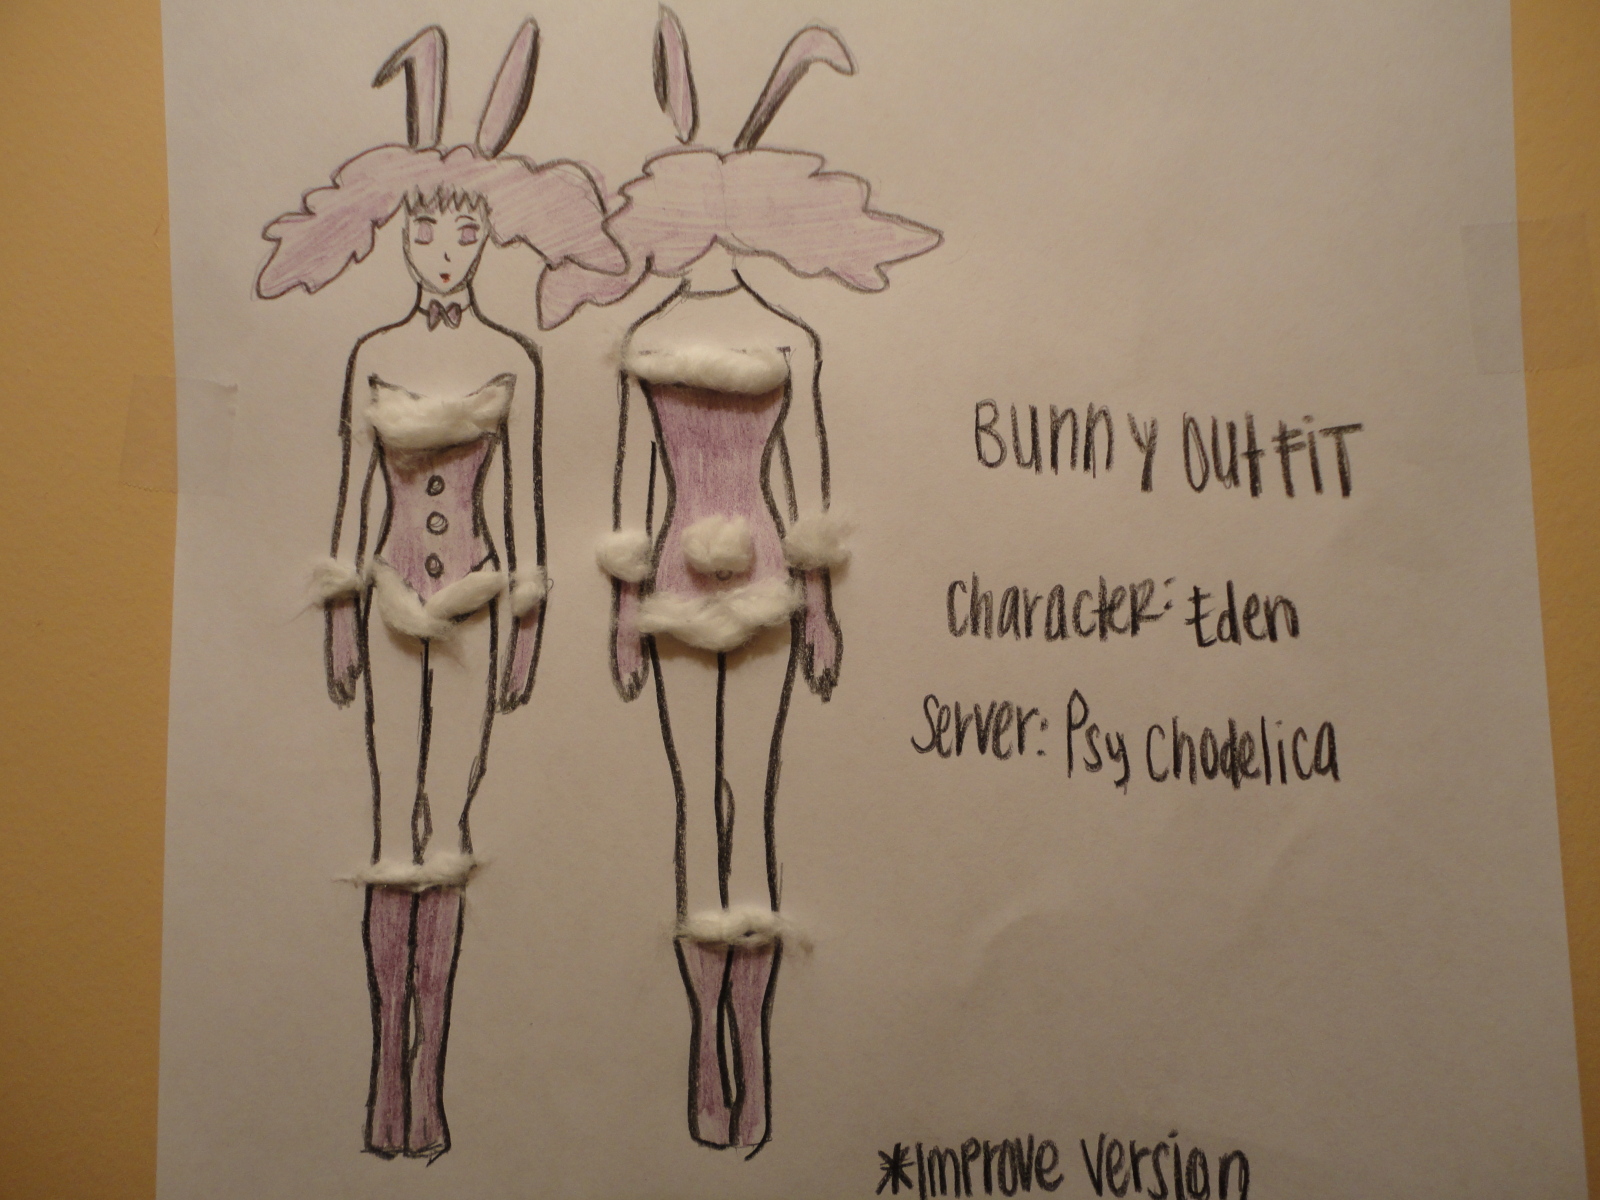 Bunny OutFiT
Character: Eden
Server: Psychodelica
*Improve version